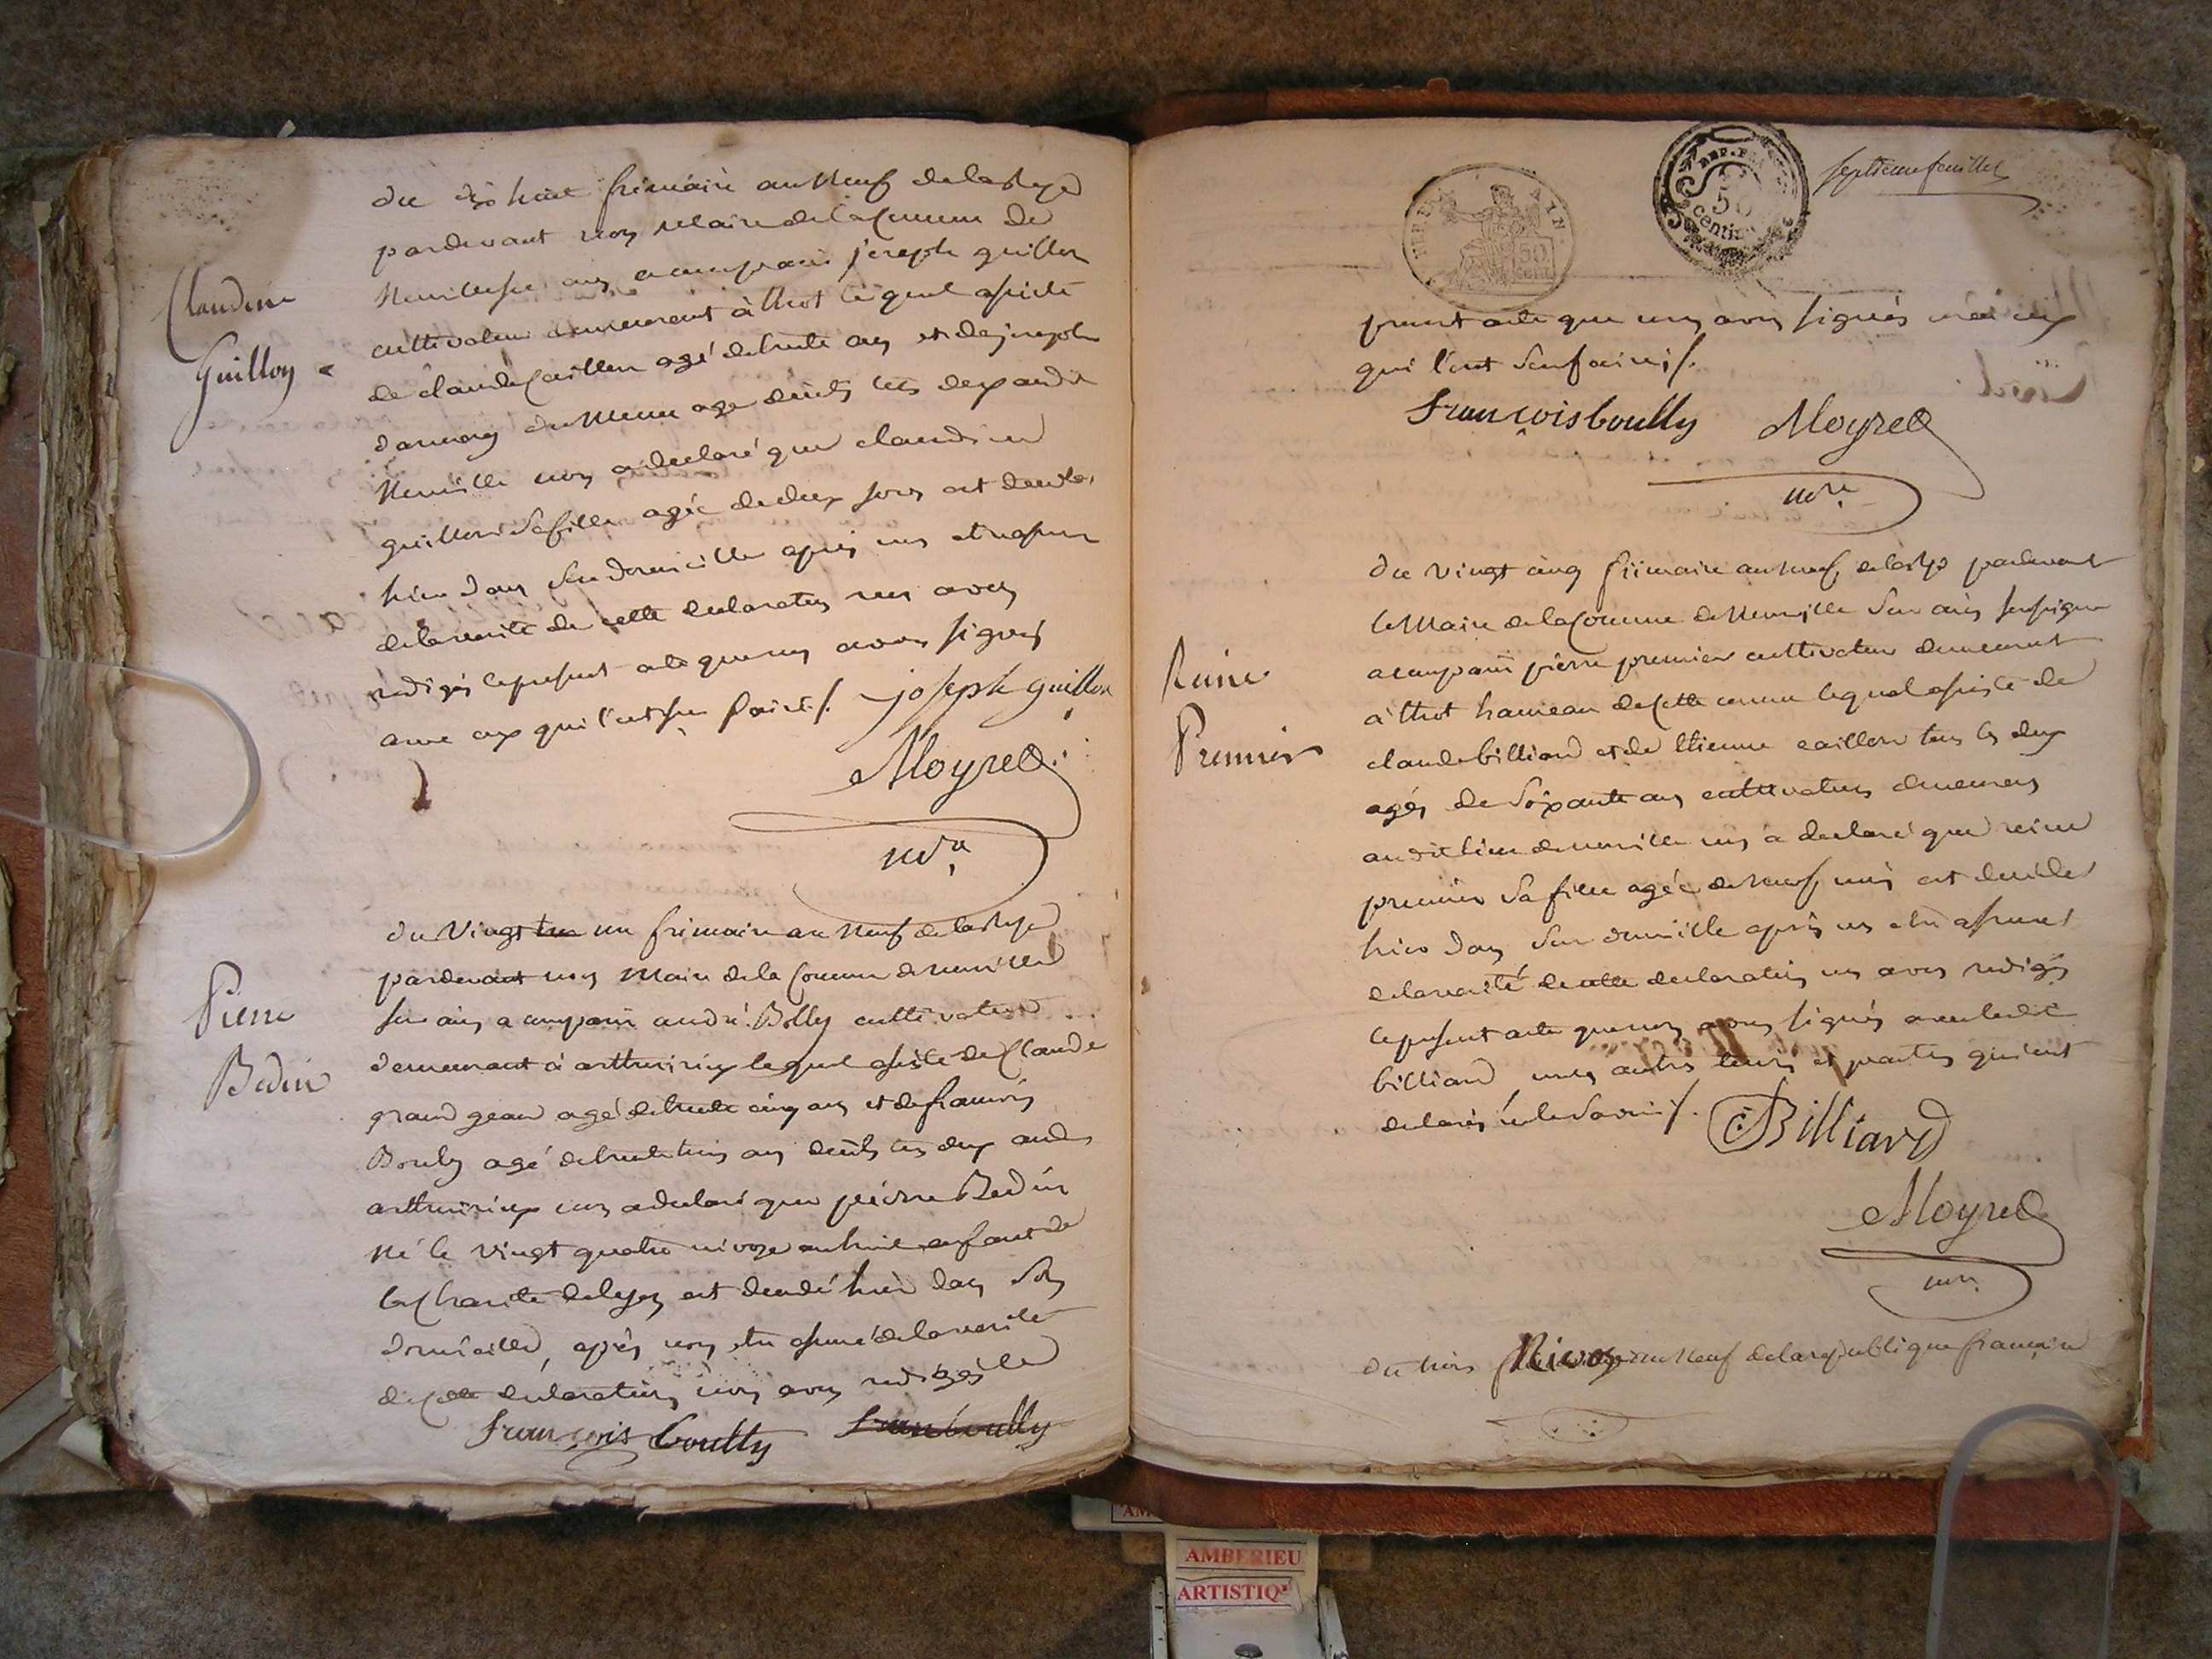 Claudine
Guillon
du dix huit frimaire an Neuf de la Rep
pardevant nous Maire de la Commune de
Neuville sur ain a comparu joseph guillon
cultivateur demeurant à thol lequel assisté
de claude Caillon agé de trente ans et de joseph
du Meme age
Neuville nous a declaré que claudine
guillon sa fille agée de deux jours est decedée
hier dans son domicille après nous etre assuré
de la verité de cette declaration nous avons
redigés le present acte que nous avons signés
avec eux qui l'ont su faire /. joseph guillon
Moyret
mre
Pierre
Bedin
du Vingt un frimaire an Neuf de la Rep
pardevant nous Maire de la Comune de neuville
sur ain a comparu andré Bolly cultivateur
demeurant à arthuirieux lequel assisté de Claude
grand gean agé de trente cinq ans et de francois
Bouly agé de trente trois ans les deux aud
arthuirieux nous a declaré que pierre Bedin
Né le vingt quatre nivoze an huit enfant de
la Charité de lyon est decedé hier dans son
domicille, après nous etre assuré de la verité
de cette declaration nous avons redigés le
francois boully
septieme feuillet
REP. FRA
50
centi
50
cent
present acte que nous avons signés
qui l'ont seu faire /.
francois boully Moyret
mre
Reine
Premier
du vingt cinq frimaire an neuf de la Rep pardevant
le Maire de la Comune de Neuville sur ain soussigné
a comparu pierre premier cultivateur demeurant
à thol hameau de cette comune lequel assisté de
claude billiard et de Etienne caillon tous les deux
agés de soixante ans cultivateurs demeurans
audit lieu de neuville nous a declaré que reine
premier sa fille agée de neuf mois est decedée
hier dans son domicille après nous etre assuré
de la verité de cette declaration nous avons redigés
le present acte que nous avons signés avec ledit
billiard non les autres temoins et parties qui ont
declarés ne le savoir /. CBilliard
Moyret
mre
du trois Nivose an Neuf de la republique francaise